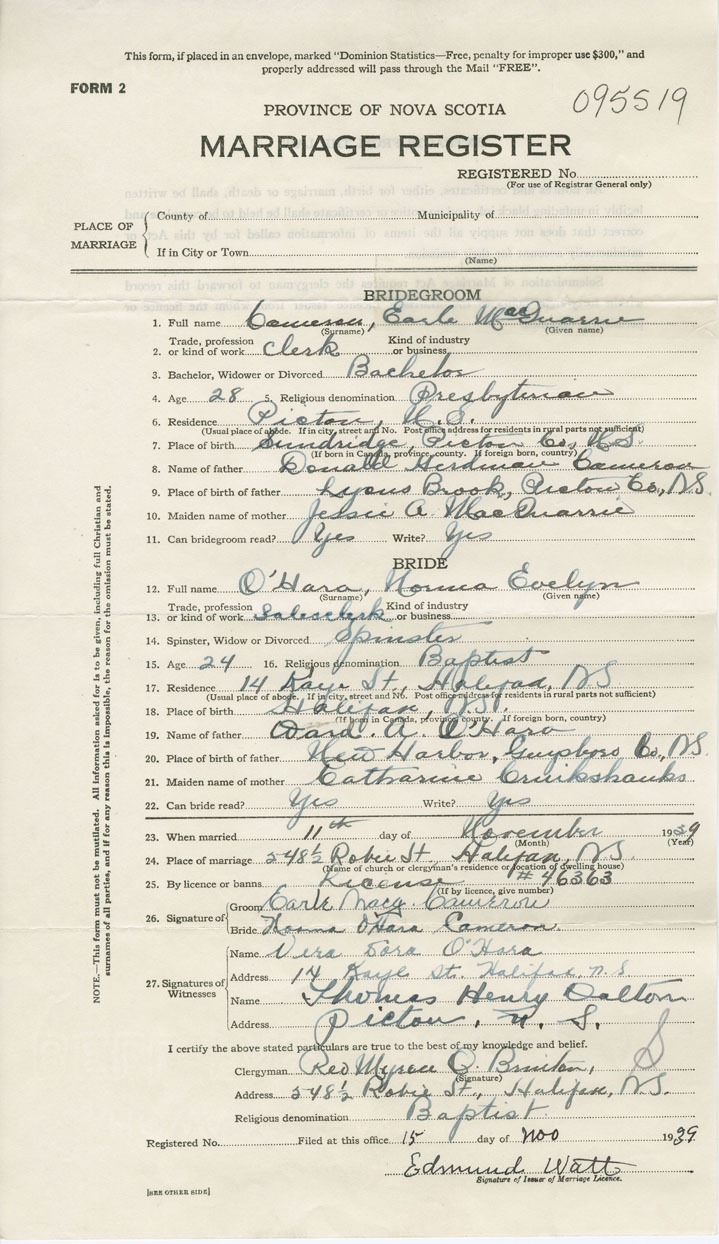 This form, if placed in an envelope, marked "Dominion Statistics—Free, penalty for improper use $300," and
properly addressed will pass through the Mail "FREE".
FORM 2
095519
PROVINCE OF NOVA SCOTIA
MARRIAGE REGISTER
REGISTERED No.
(For use of Registrar General only)
PLACE OF MARRIAGE
County of Municipality of
If in City or Town
(Name)
BRIDEGROOM
1. Full name Cameron, Earle MacQuarrie
(Surname) (Given name)
Trade, profession Kind of industry
2. or kind of work Clerk or business
3. Bachelor, Widower or Divorced Bachelor
4. Age 28 5. Religious denomination Presbyterian
6. Residence Pictou, N.S.
(Usual place of abode. If in city, street and No. Post office address for residents in rural parts not sufficient)
7. Place of birth Sundridge, Pictou Co, N.S.
(If born in Canada, province, county. If foreign born, country)
8. Name of father Donald Herdman Cameron
9. Place of birth of father Lyons Brook, Pictou Co, N.S.
10. Maiden name of mother Jessie A MacQuarrie
11. Can bridegroom read? Yes Write? Yes
BRIDE
12. Full name O'Hara, Norma Evelyn
(Surname) (Given name)
Trade, profession Kind of industry
13. or kind of work Salesclerk or business
14. Spinster, Widow or Divorced Spinster
15. Age 24 16. Religious denomination Baptist
17. Residence 14 Kaye St., Halifax, N.S.
(Usual place of abode. If in city, street and No. Post office address for residents in rural parts not sufficient)
18. Place of birth Halifax, N.S.
(If born in Canada, province, county. If foreign born, country)
19. Name of father Ward. A. O'Hara
20. Place of birth of father New Harbor, Guysboro Co, N.S.
21. Maiden name of mother Catharine Cruikshanks
22. Can bride read? Yes Write? Yes
23. When married 11th day of November 1939
(Month) (Year)
24. Place of marriage 548½ Robie St, Halifax, N.S.
(Name of church or clergyman's residence or location of dwelling house)
25. By licence or banns License # 46363
(If by licence, give number)
26. Signature of
Groom Earle Macq. Cameron
Bride Norma O'Hara Cameron
27. Signatures of Witnesses
Name Vera O'Hara
Address 14 Kaye St. Halifax, N.S
Name Thomas Henry Dalton
Address Pictou, N. S.
I certify the above stated particulars are true to the best of my knowledge and belief.
Clergyman Rev Myron O. Brinton,
(Signature)
Address 548½ Robie St., Halifax, N.S.
Religious denomination Baptist
Registered No. Filed at this office 15 day of Nov 1939
Edmund Watt
Signature of Issuer of Marriage Licence.
[SEE OTHER SIDE]
NOTE.—This form must not be mutilated. All information asked for is to be given, including full Christian and
surnames of all parties, and if for any reason this is impossible, the reason for the omission must be stated.